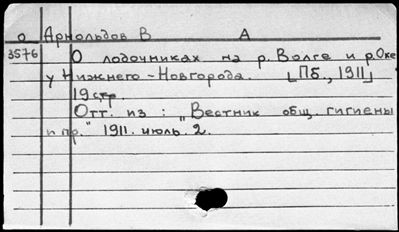 О Арнольдов В А
3576 О лодочниках на р. Волге и р. Оке
у Нижнего-Новгорода. [Пб., 1911]
19 стр.
Отт. из: "Вестник общ. гигиены
и пр." 1911. июль. 2.